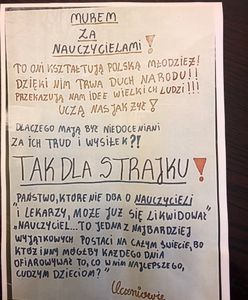 MUREM
ZA
NAUCZYCIELAMI!
TO ONI KSZTAŁTUJĄ POLSKĄ MŁODZIEŻ!
DZIĘKI NIM TRWA DUCH NARODU!!
PRZEKAZUJĄ NAM IDEE WIELKICH LUDZI!!!
UCZĄ NAS JAK ŻYĆ!
DLACZEGO MAJĄ BYĆ NIEDOCENIANI
ZA ICH TRUD I WYSIŁEK?!
TAK DLA STRAJKU!
"PAŃSTWO, KTÓRE NIE DBA O NAUCZYCIELI
I LEKARZY, MOŻE JUŻ SIĘ LIKWIDOWAĆ"
"NAUCZYCIEL... TO JEDNA Z NAJBARDZIEJ
WYJĄTKOWYCH POSTACI NA CAŁYM ŚWIECIE, BO
KTÓŻ INNY MÓGŁBY KAŻDEGO DNIA
OFIAROWYWAĆ TO, CO W NIM NAJLEPSZEGO,
CUDZYM DZIECIOM?"
Uczniowie